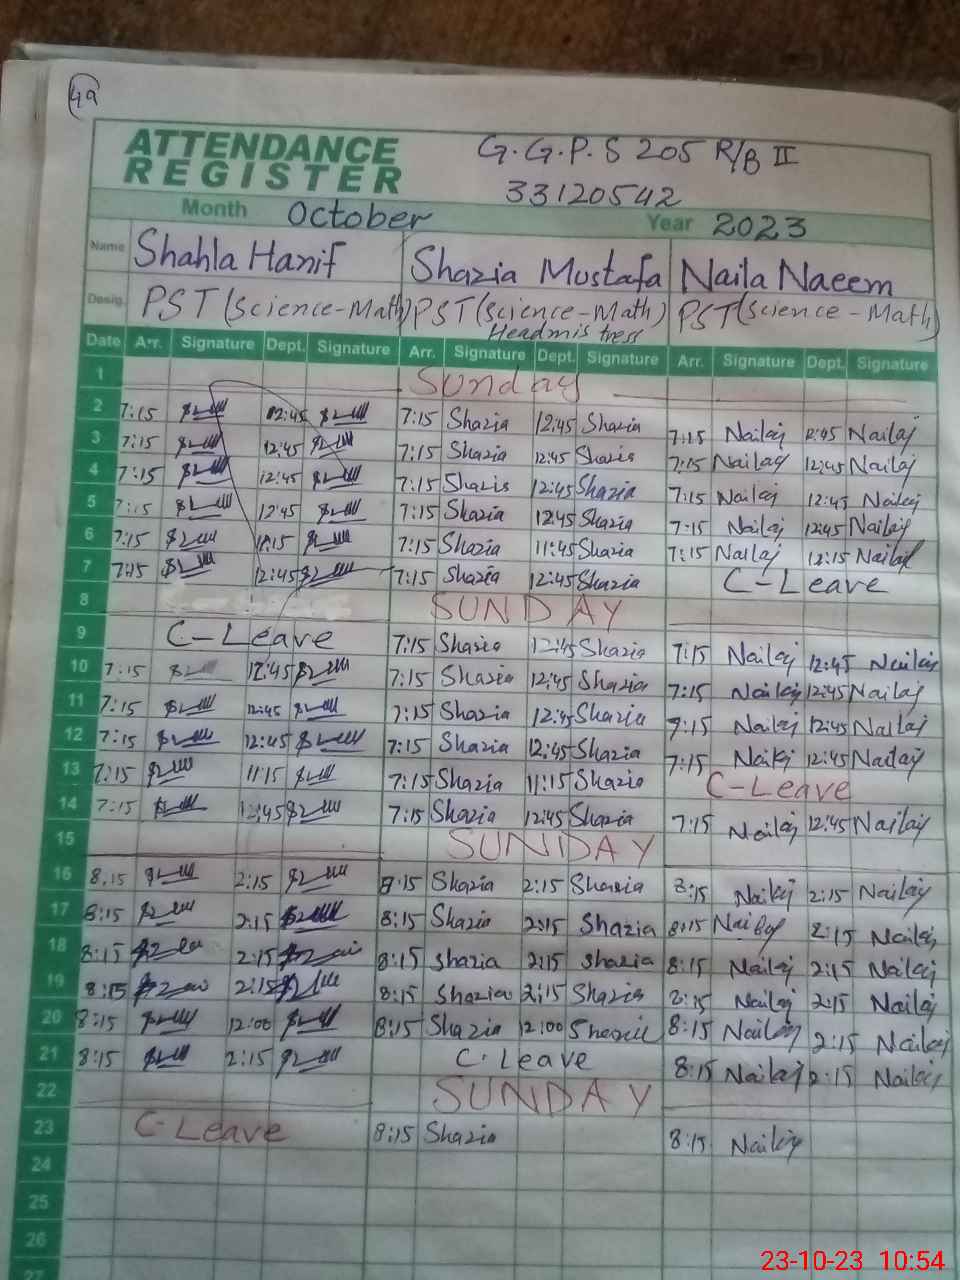 49
ATTENDANCE REGISTER G.G.P.S 205 R/B II
33120542
Month October Year 2023
Name Shahla Hanif Shazia Mustafa Naila Naeem
Desig. PST (Science-Math) PST (Science-Math) PST (Science-Math)
Headmistress
Date Arr. Signature Dept. Signature Arr. Signature Dept. Signature Arr. Signature Dept. Signature
1 Sunday
2 7:15 12:45 7:15 Shazia 12:45 Shazia 7:15 Nailaj 12:45 Nailaj
3 7:15 12:45 7:15 Shazia 12:45 Shazia 7:15 Nailaj 12:45 Nailaj
4 7:15 12:45 7:15 Shazia 12:45 Shazia 7:15 Nailaj 12:45 Nailaj
5 7:15 12:45 7:15 Shazia 12:45 Shazia 7:15 Nailaj 12:45 Nailaj
6 7:15 11:15 7:15 Shazia 11:45 Shazia 7:15 Nailaj 12:15 Nailaj
7 7:15 12:45 7:15 Shazia 12:45 Shazia C-Leave
8 SUNDAY
9 C-Leave 7:15 Shazia 12:45 Shazia 7:15 Nailaj 12:45 Nailaj
10 7:15 12:45 7:15 Shazia 12:45 Shazia 7:15 Nailaj 12:45 Nailaj
11 7:15 12:45 7:15 Shazia 12:45 Shazia 7:15 Nailaj 12:45 Nailaj
12 7:15 12:45 7:15 Shazia 12:45 Shazia 7:15 Nailaj 12:45 Nailaj
13 7:15 11:15 7:15 Shazia 11:15 Shazia C-Leave
14 7:15 12:45 7:15 Shazia 12:45 Shazia 7:15 Nailaj 12:45 Nailaj
15 SUNDAY
16 8:15 2:15 8:15 Shazia 2:15 Shazia 8:15 Nailaj 2:15 Nailaj
17 8:15 2:15 8:15 Shazia 2:15 Shazia 8:15 Nailaj 2:15 Nailaj
18 8:15 2:15 8:15 Shazia 2:15 Shazia 8:15 Nailaj 2:15 Nailaj
19 8:15 2:15 8:15 Shazia 2:15 Shazia 8:15 Nailaj 2:15 Nailaj
20 8:15 12:00 8:15 Shazia 12:00 Shazia 8:15 Nailaj 2:15 Nailaj
21 8:15 2:15 C.Leave 8:15 Nailaj 2:15 Nailaj
22 SUNDAY
23 C-Leave 8:15 Shazia 8:15 Nailaj
24
25
26
27
23-10-23 10:54